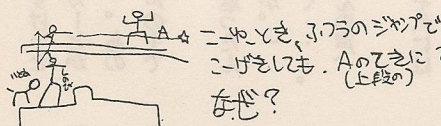 A
こーゆーとき、ふつうのジャンプで
こーげきしても、Aのてきに
(上段の)
なぜ?